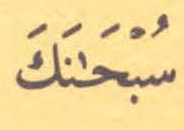 سُبْحَٰنَكَ